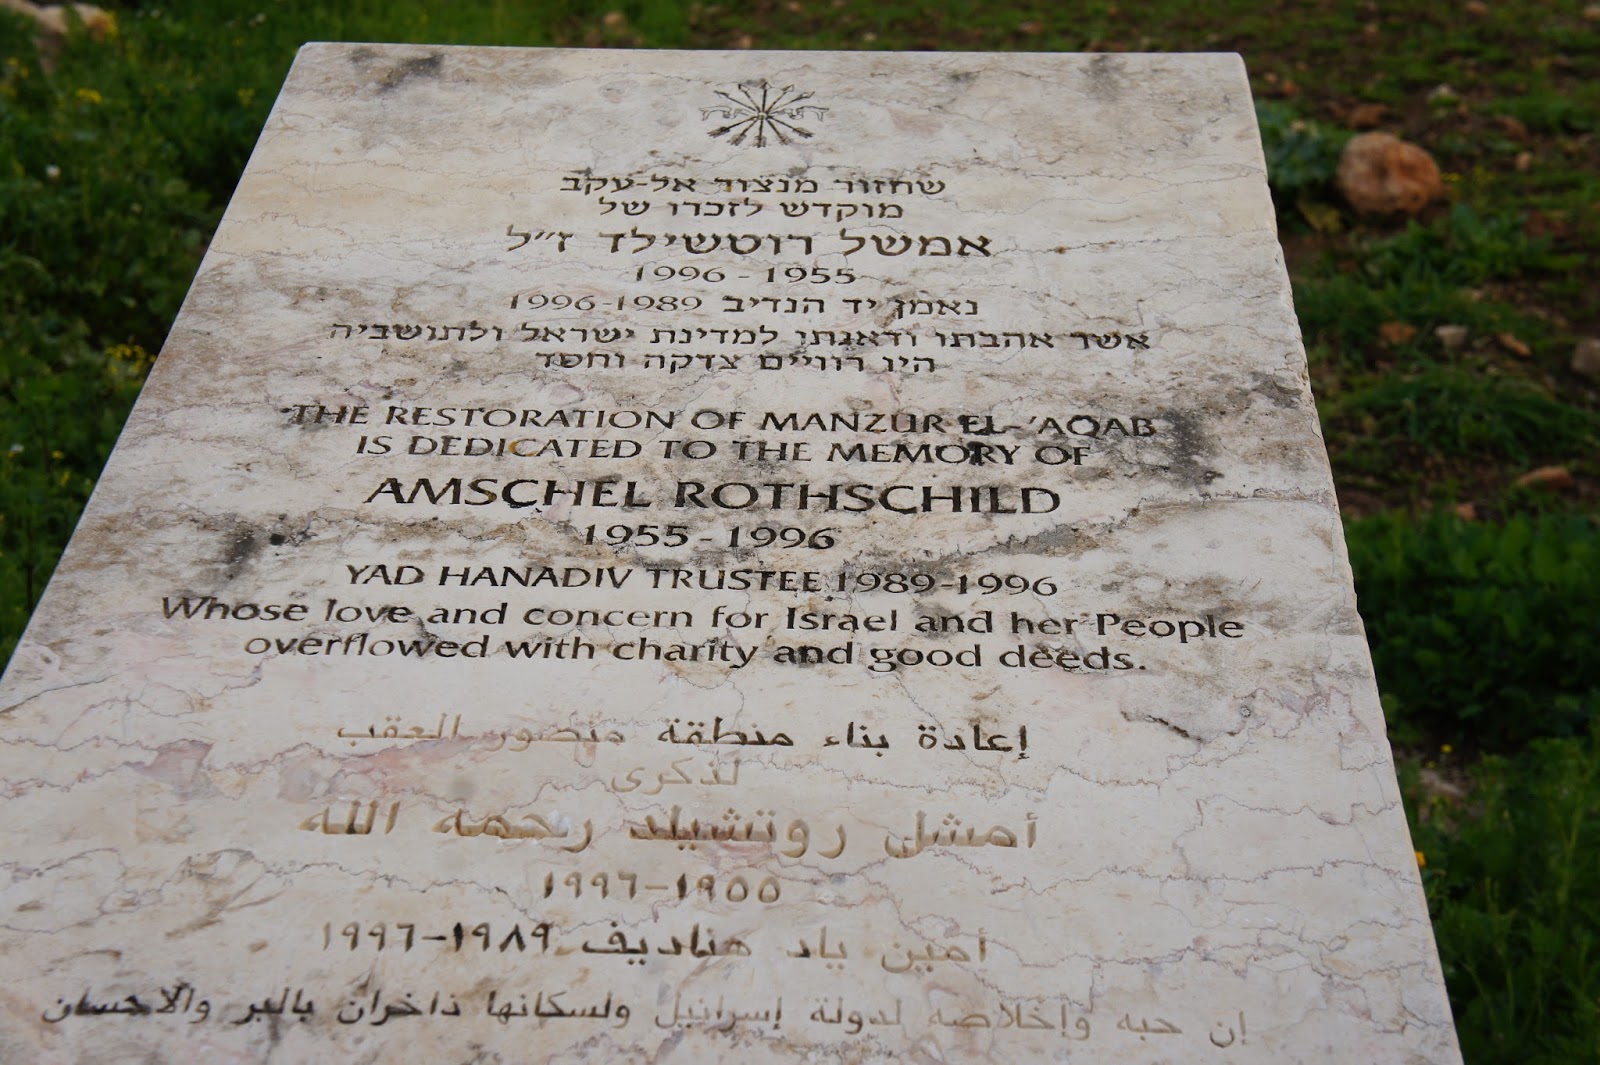 שחזור מנצור אל-עקב
מוקדש לזכרו של
אמשל רוטשילד ז״ל
1996 - 1955
נאמן יד הנדיב 1996-1989
אשר אהבתו ודאגתו למדינת ישראל ולתושביה
היו רוויים צדקה וחסד
THE RESTORATION OF MANZUR EL-'AQAB
IS DEDICATED TO THE MEMORY OF
AMSCHEL ROTHSCHILD
1955 - 1996
YAD HANADIV TRUSTEE 1989-1996
Whose love and concern for Israel and her People
overflowed with charity and good deeds.
إعادة بناء منطقة منصور العقب
لذكرى
أمشل روتشيلد رحمه الله
١٩٥٥-١٩٩٦
أمين ياد هناديف ١٩٨٩-١٩٩٦
إن حبه وإخلاصه لدولة إسرائيل ولسكانها ذاخران بالبر والاحسان